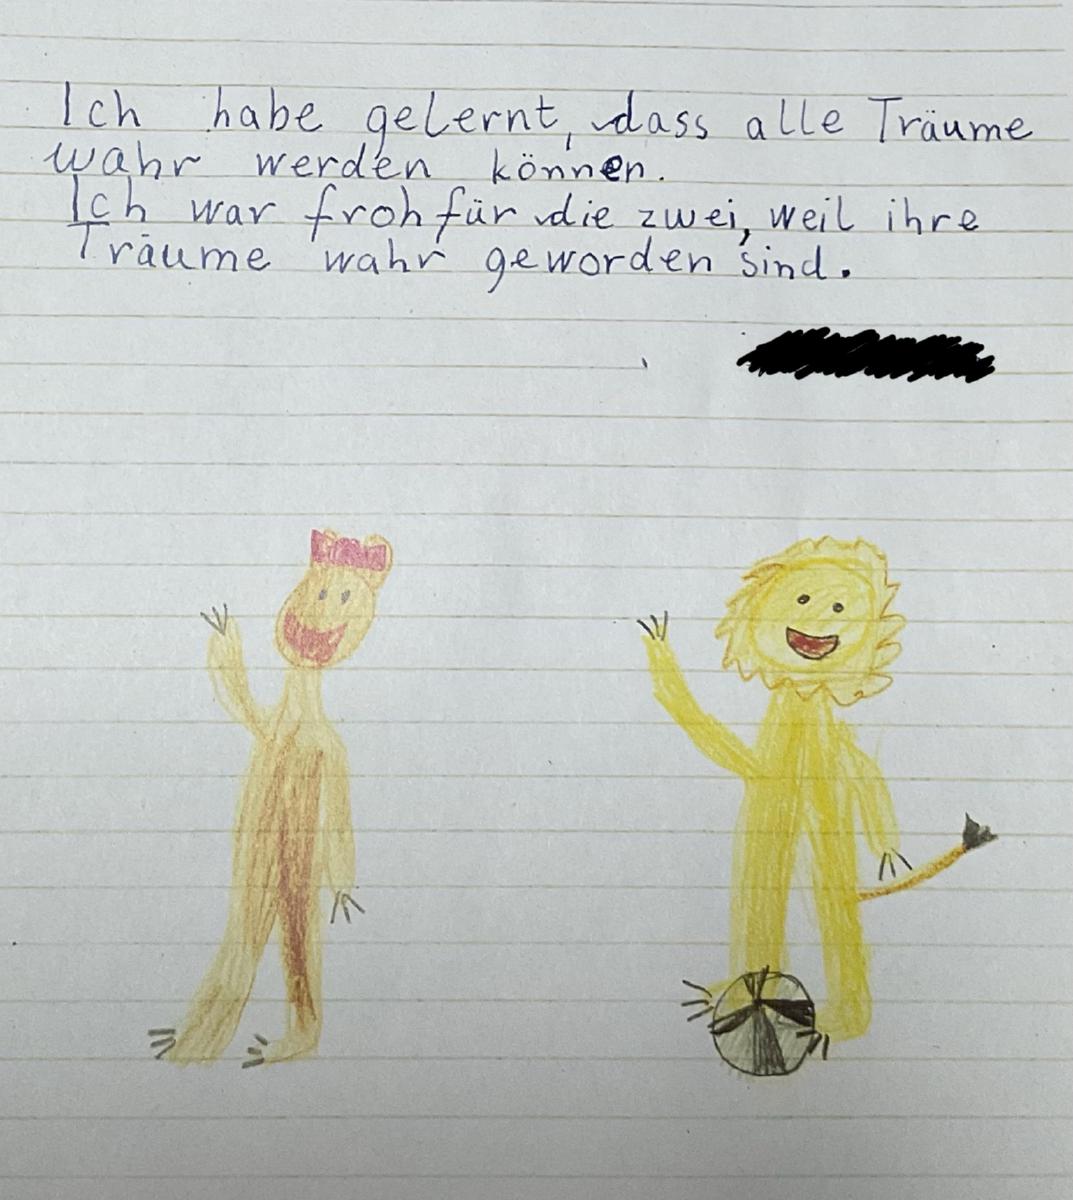 Ich habe gelernt, dass alle Träume
wahr werden können.
Ich war froh für die zwei, weil ihre
Träume wahr geworden sind.